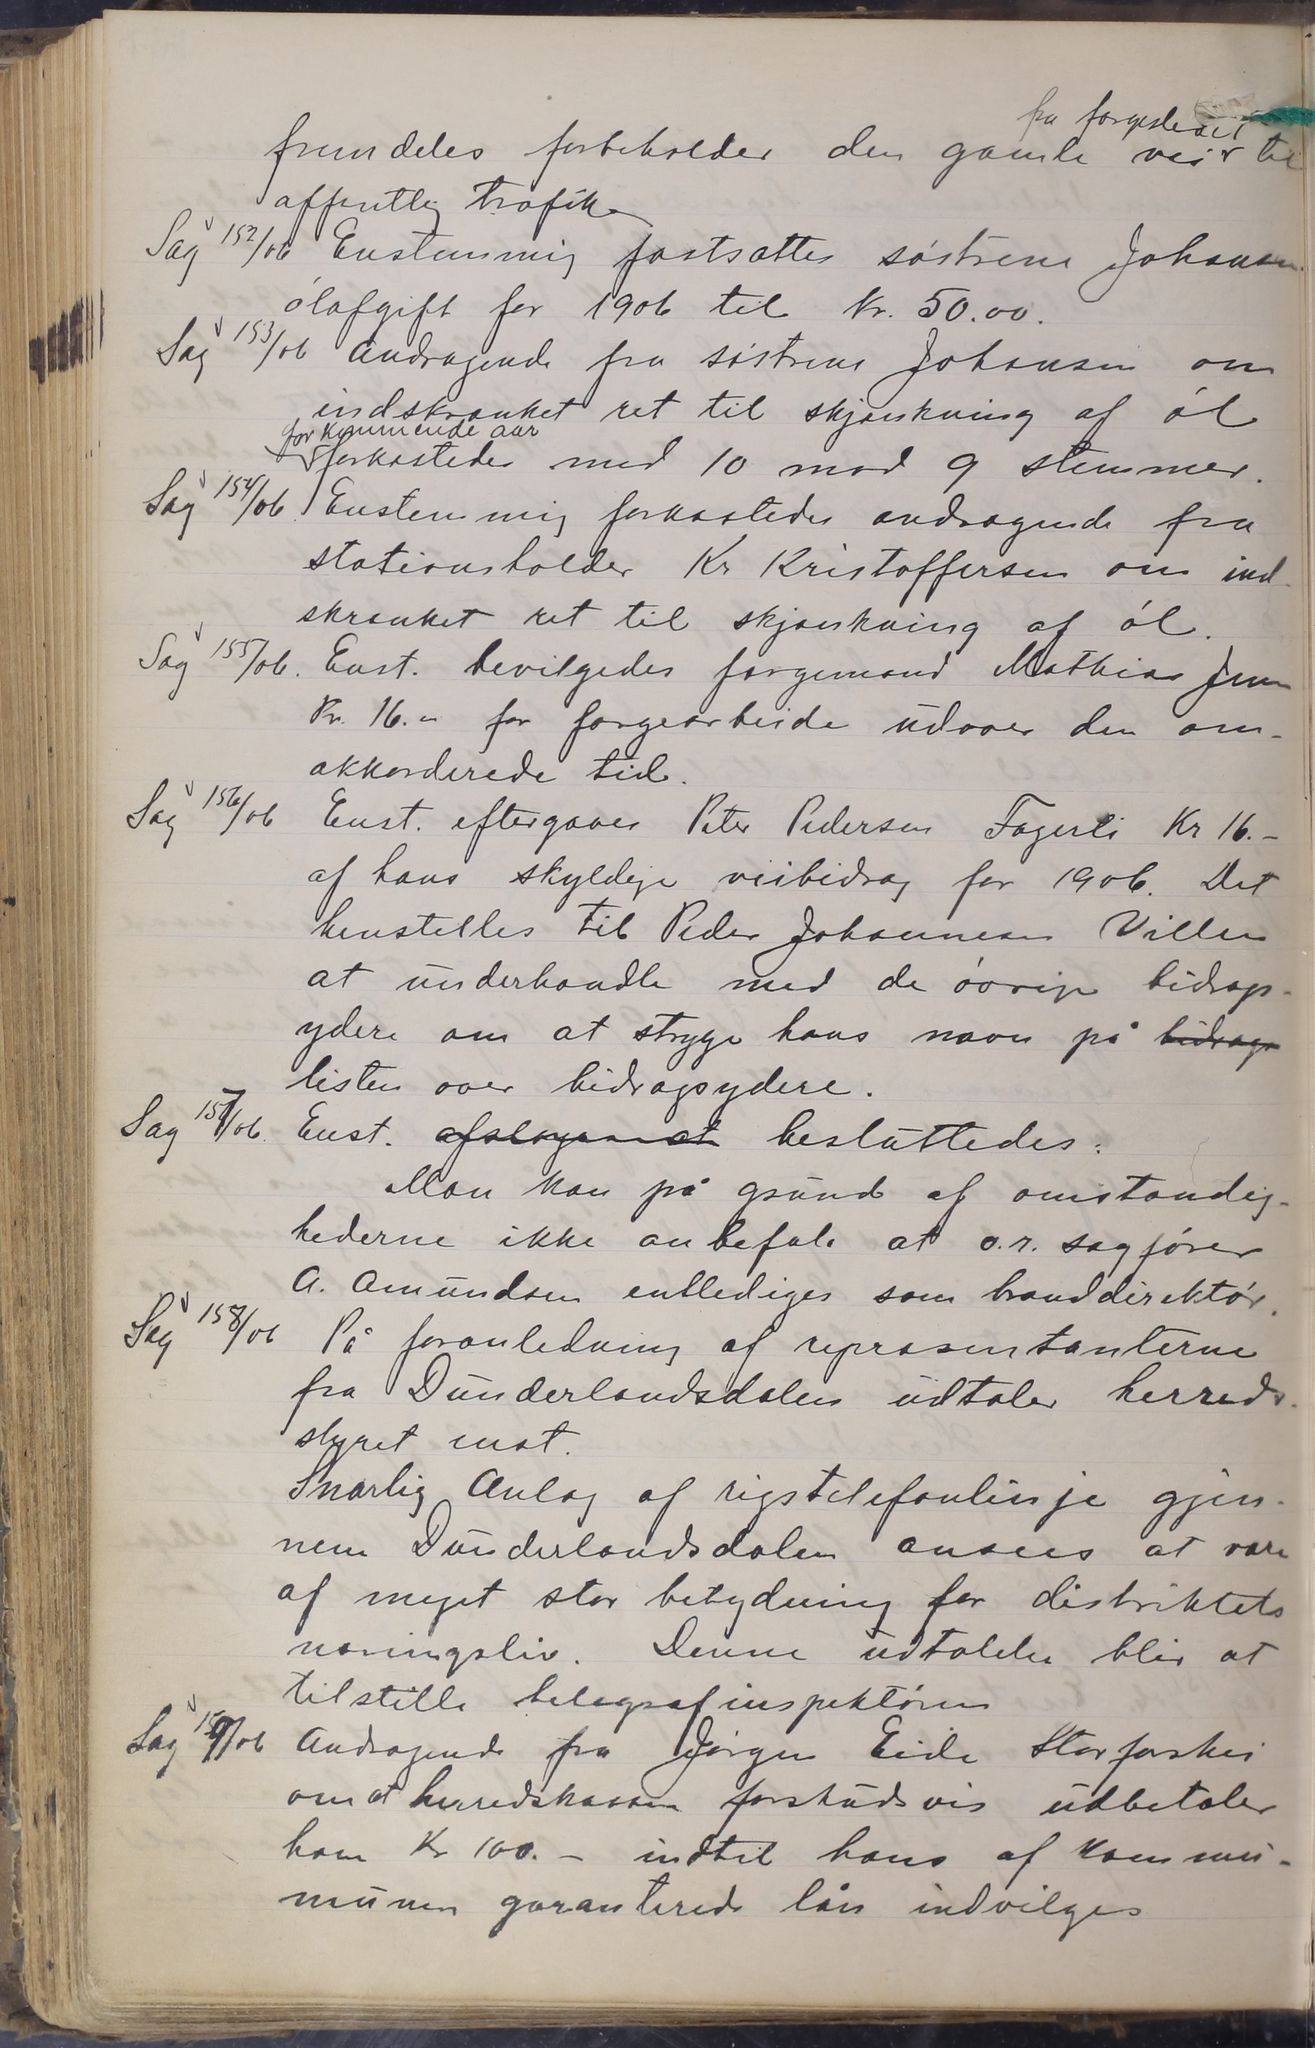 fra færgestedet
fremdeles forbeholder den gamle vei til
offentlig trafik
Sag 152/06 Enstemmig fastsattes søstrene Johansen
ølafgift for 1906 til Kr. 50.00.
Sag 153/06 Andragende fra søstrene Johansen om
indskrænket ret til skjænkning af øl
for kommende aar
forkastedes med 10 mod 9 stemmer.
Sag 154/06 Enstemmig forkastedes andragende fra
stationsholder Kr Kristoffersen om ind-
skrænket ret til skjænkning af øl.
Sag 155/06. Enst. bevilgedes færgemand Mathias Jensen
Kr. 16.- for færgearbeide udover den om-
akkorderede tid.
Sag 156/06 Enst. eftergaves Peter Pedersen Fagerli Kr 16.-
af hans skyldige veibidrag for 1906. Det
henstilles til Peder Johannesen Villen
at underhandle med de øvrige bidrags-
ydere om at stryge hans navn på bidrags
listen over bidragsydere.
Sag 157/06. Enst. besluttedes:
Man kan på grund af omstændig-
hederne ikke anbefale at o.r. sagfører
A. Amundsen entlediges som branddirektør.
Sag 158/06 På foranledning af repræsentanterne
fra Dunderlandsdalen udtaler herreds-
styret enst.
Snarlig Anlæg af rigstelefonlinje gjen-
nem Dunderlandsdalen ansees at være
af meget stor betydning for distriktets
næringsliv. Denne udtalelse blir at
tilstille telegrafinspektøren
Sag 159/06 Andragende fra Jørgen Eide Storforshei
om at herredskassen forskudsvis udbetaler
ham Kr 100.- indtil hans af kommu-
munen garanterede lån indvilges